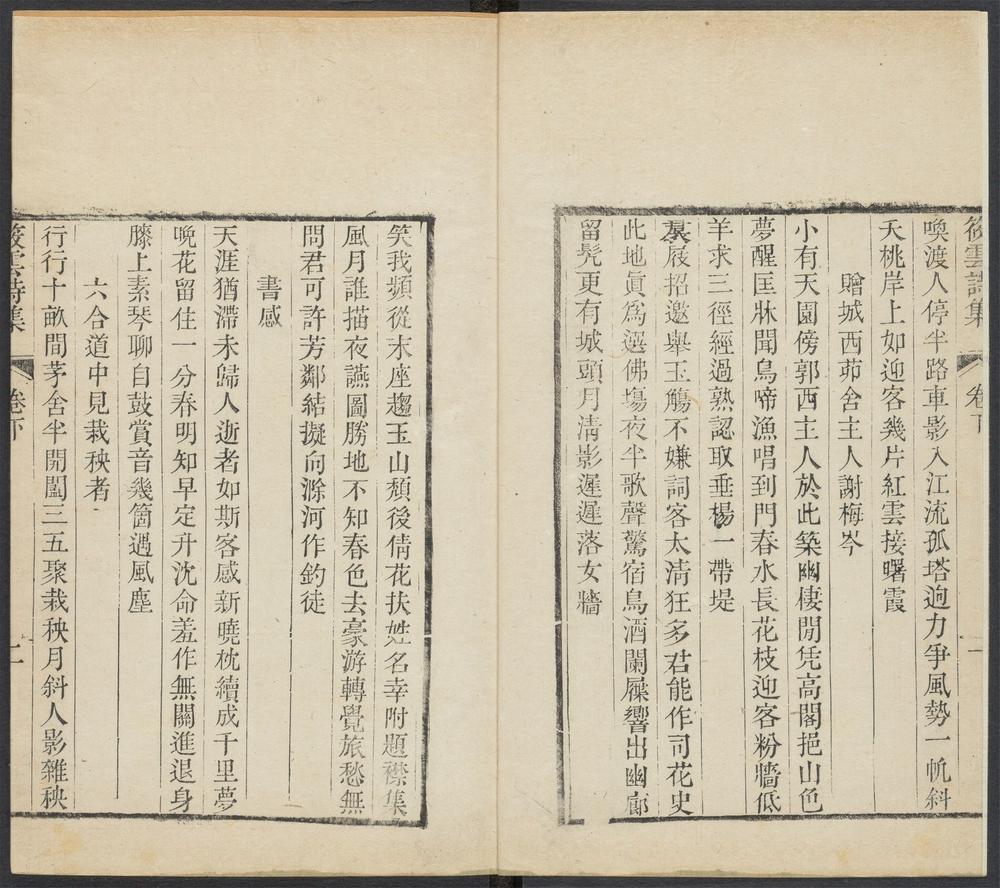 筱雲詩集 卷下 一
喚渡人停半路車影入江流孤塔逈力爭風勢一帆斜
夭桃岸上如迎客幾片紅雲接曙霞
贈城西茆舍主人謝梅岑
小有天園傍郭西主人於此築幽棲閒凭高閣挹山色
夢醒匡牀聞鳥啼漁唱到門春水長花枝迎客粉牆低
羊求三徑經過熟認取垂楊一帶堤
裠屐招邀舉玉觴不嫌詞客太淸狂多君能作司花史
此地眞爲選佛塲夜半歌聲驚宿鳥酒闌屧響出幽廊
留髡更有城頭月淸影遲遲落女牆
笑我頻從末座趨玉山頹後倩花扶姓名幸附題襟集
風月誰描夜讌圖勝地不知春色去豪游轉覺旅愁無
問君可許芳鄰結擬向滁河作釣徒
書感
天涯猶滯未歸人逝者如斯客感新曉枕續成千里夢
晩花留住一分春明知早定升沈命羞作無關進退身
膝上素琴聊自鼓賞音幾箇遇風塵
六合道中見栽秧者
行行十畝間茅舍半開闔三五聚栽秧月斜人影雜秧
筱雲詩集 卷下 二